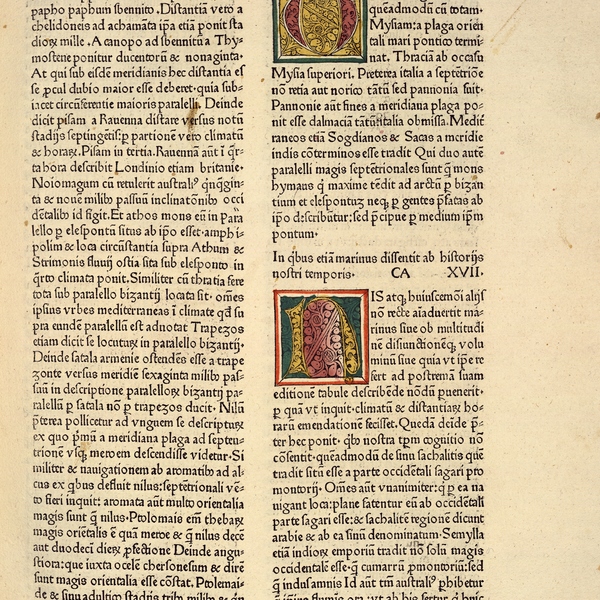 papho paphum sbennito. Distantiā vero a
chelidoneis ad achamāta ipa etiā ponit sta
diorꝝ mille. A canopo ad sbennitū a Thy-
mostene ponitur ducentorū & nonaginta.
At qui sub eisdē meridianis hec distantia eſ
se ꝓcul dubio maior esse deberet. quia sub-
iacet circūferentie maioris paralleli. Deinde
dicit pisam a Rauenna distare versus notū
stadijs septingētis: ꝑ partionē vero climatū
& horarꝝ. Pisam in tertia. Rauennā aūt ī q̄r-
ta hora describit Londinio etiam britanie.
Noiomagum cū retulerit australiꝰ qnq̄gin-
ta & nouē milibꝰ passuū inclinatōnibꝰ occi
dētalibꝰ id figit. Et athos mons eū in para
lello ꝑ elespontū situs ab ipo esset. amphi-
polim & loca circūstantia supra Athum &
Strimonis fluuij ostia sita sub elesponto in
q̄rto climata ponit. Similiter cū thratia fere
tota sub paralello bizantij locata sit. om̄es
ipsius vrbes mediterraneas ī climate qd su
pra eundē paralellū est aduotat Trapezos
etiam dicit se locuturꝝ in paralello bizantij.
Deinde satala armenie ostendēs esse a trape
zonte versus meridiē sexaginta milibꝰ pas-
suū in descriptione paralellorꝝ bizantij pa-
ralellū ꝑ satala nō ꝑ trapezos ducit. Nilū
p̄terea pollicetur ad vnguem se descripturꝝ
ex quo pͥmū a meridiana plaga ad septen-
trionē vsq; meroem descendisse videtur. Si
militer & nauigationem ab aromatibꝰ ad al-
cus ex qbꝰ defluit nilus: septētrionali vē-
to fieri inquit: aromata aūt multo orientalia
magis sunt q̄ nilus. Ptolomais em̄ thebarꝝ
magis oriētalis ē quā meroe & q̄ nilus decē
aut duodeci dierꝝ ꝓfectione Deinde angu-
stiora: que iuxta ocelē chersonesum & dirē
sunt magis orientalia esse cōstat. Ptolemai-
de & sinu adultico stadijs tribꝰ milibꝰ & q̄n
quēadmodū cū totam.
Mysiam: a plaga oriēn
tali mari pontico termi-
nat. Thraciā ab occasu
Mysia superiori. Preterea italia a septētrioē
nō retia aut norico tātū sed pannonia suit.
Pannonie aūt fines a meridiana plaga po-
nit esse dalmaciā tātū: italia obmissa. Medit̄
raneos etiā Sogdianos & Sacas a meridie
indis cōterminos esse tradit Qui duo autē
paralelli magis septētrionales sunt q̄ mons
hymaus q̄ maxime tēdit ad arctū ꝑ bizan
tium et elespontuꝫ neq; ꝑ gentes p̄fatas ab
ip̄o d:scribitur: sed p̄cipue ꝑ medium ip̄m
pontum.
In qbus etiā marinus dissentit ab historijs
nostri temporis. CA XVII.
IS atq; huiuscemōi alijs
nō recte aīaduertit ma-
rinus siue ob multitudi
nē disiunctionēq; volu
minū siue quia vt ip̄e re
fert ad postremā suam
editionē tabule describēde nōdū puenerit.
ꝑ quā vt inquit. climatū & distantiarꝝ ho-
rarū emendationē fecisset. Quedā deīde p̄-
ter hec ponit. qbꝰ nostra tpm̄ cognitio nō
cōsentit. quēadmodū de sinu sachalitis que
tradit sitū esse a parte occidētali sagari pro
montorij. Om̄es aūt vnanimiter: q ꝑ ea na
uigant loca: plane fatentur eū ab occidētali
parte sagari esse: & sachalitē regionē dicunt
arabie & ab ea sinū denominatum. Semylla
etiā indiorꝝ emporiū tradit nō solū magis
occidentalē esse. q̄ cumarū ꝓmontoriū: sed
q̄ indusamnis Id aut tm̄ australiꝰ ꝑhibetur